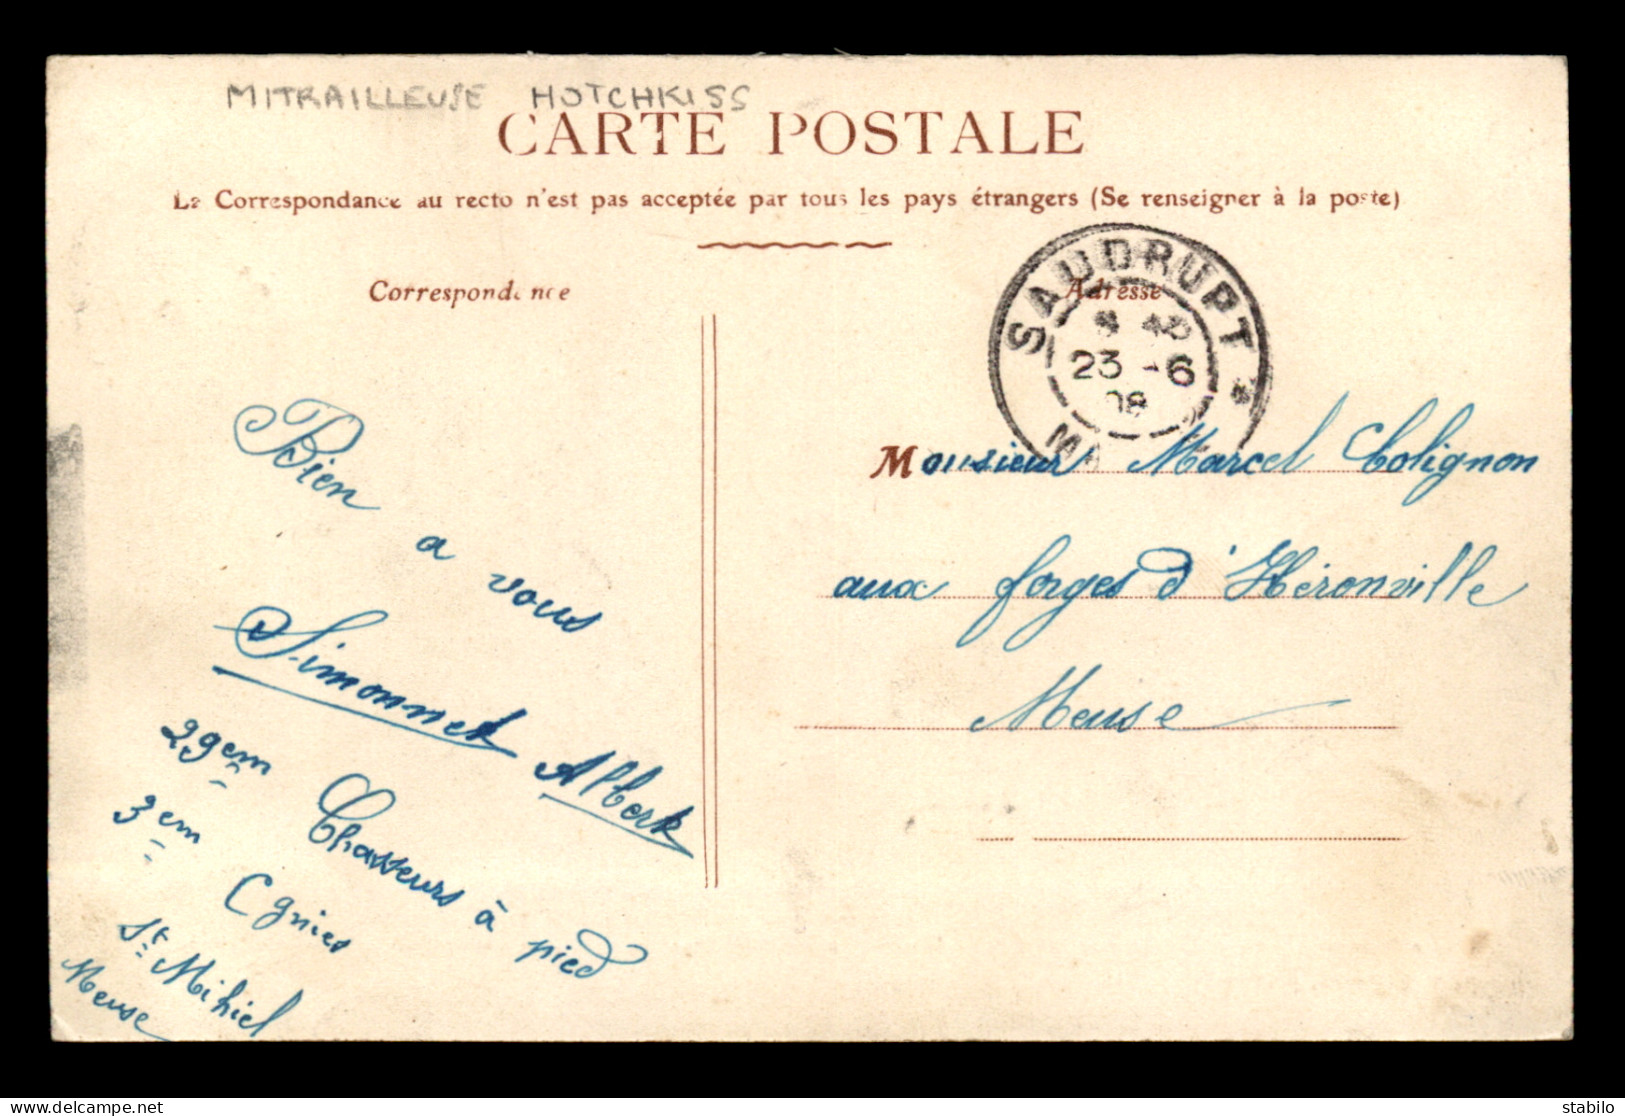 MITRAILLEUSE HOTCHKISS
CARTE POSTALE
La Correspondance au recto n'est pas acceptée par tous les pays étrangers (Se renseigner à la poste)
Correspondance
Adresse
SAUDRUPT
23 -6
08
Bien
a vous
Simonnet Albert
29em Chasseurs à pied
3em Cgnies
St Mihiel
Meuse
Monsieur Marcel Colignon
aux forges d'Héronville
Meuse
delcampe.net
stabilo